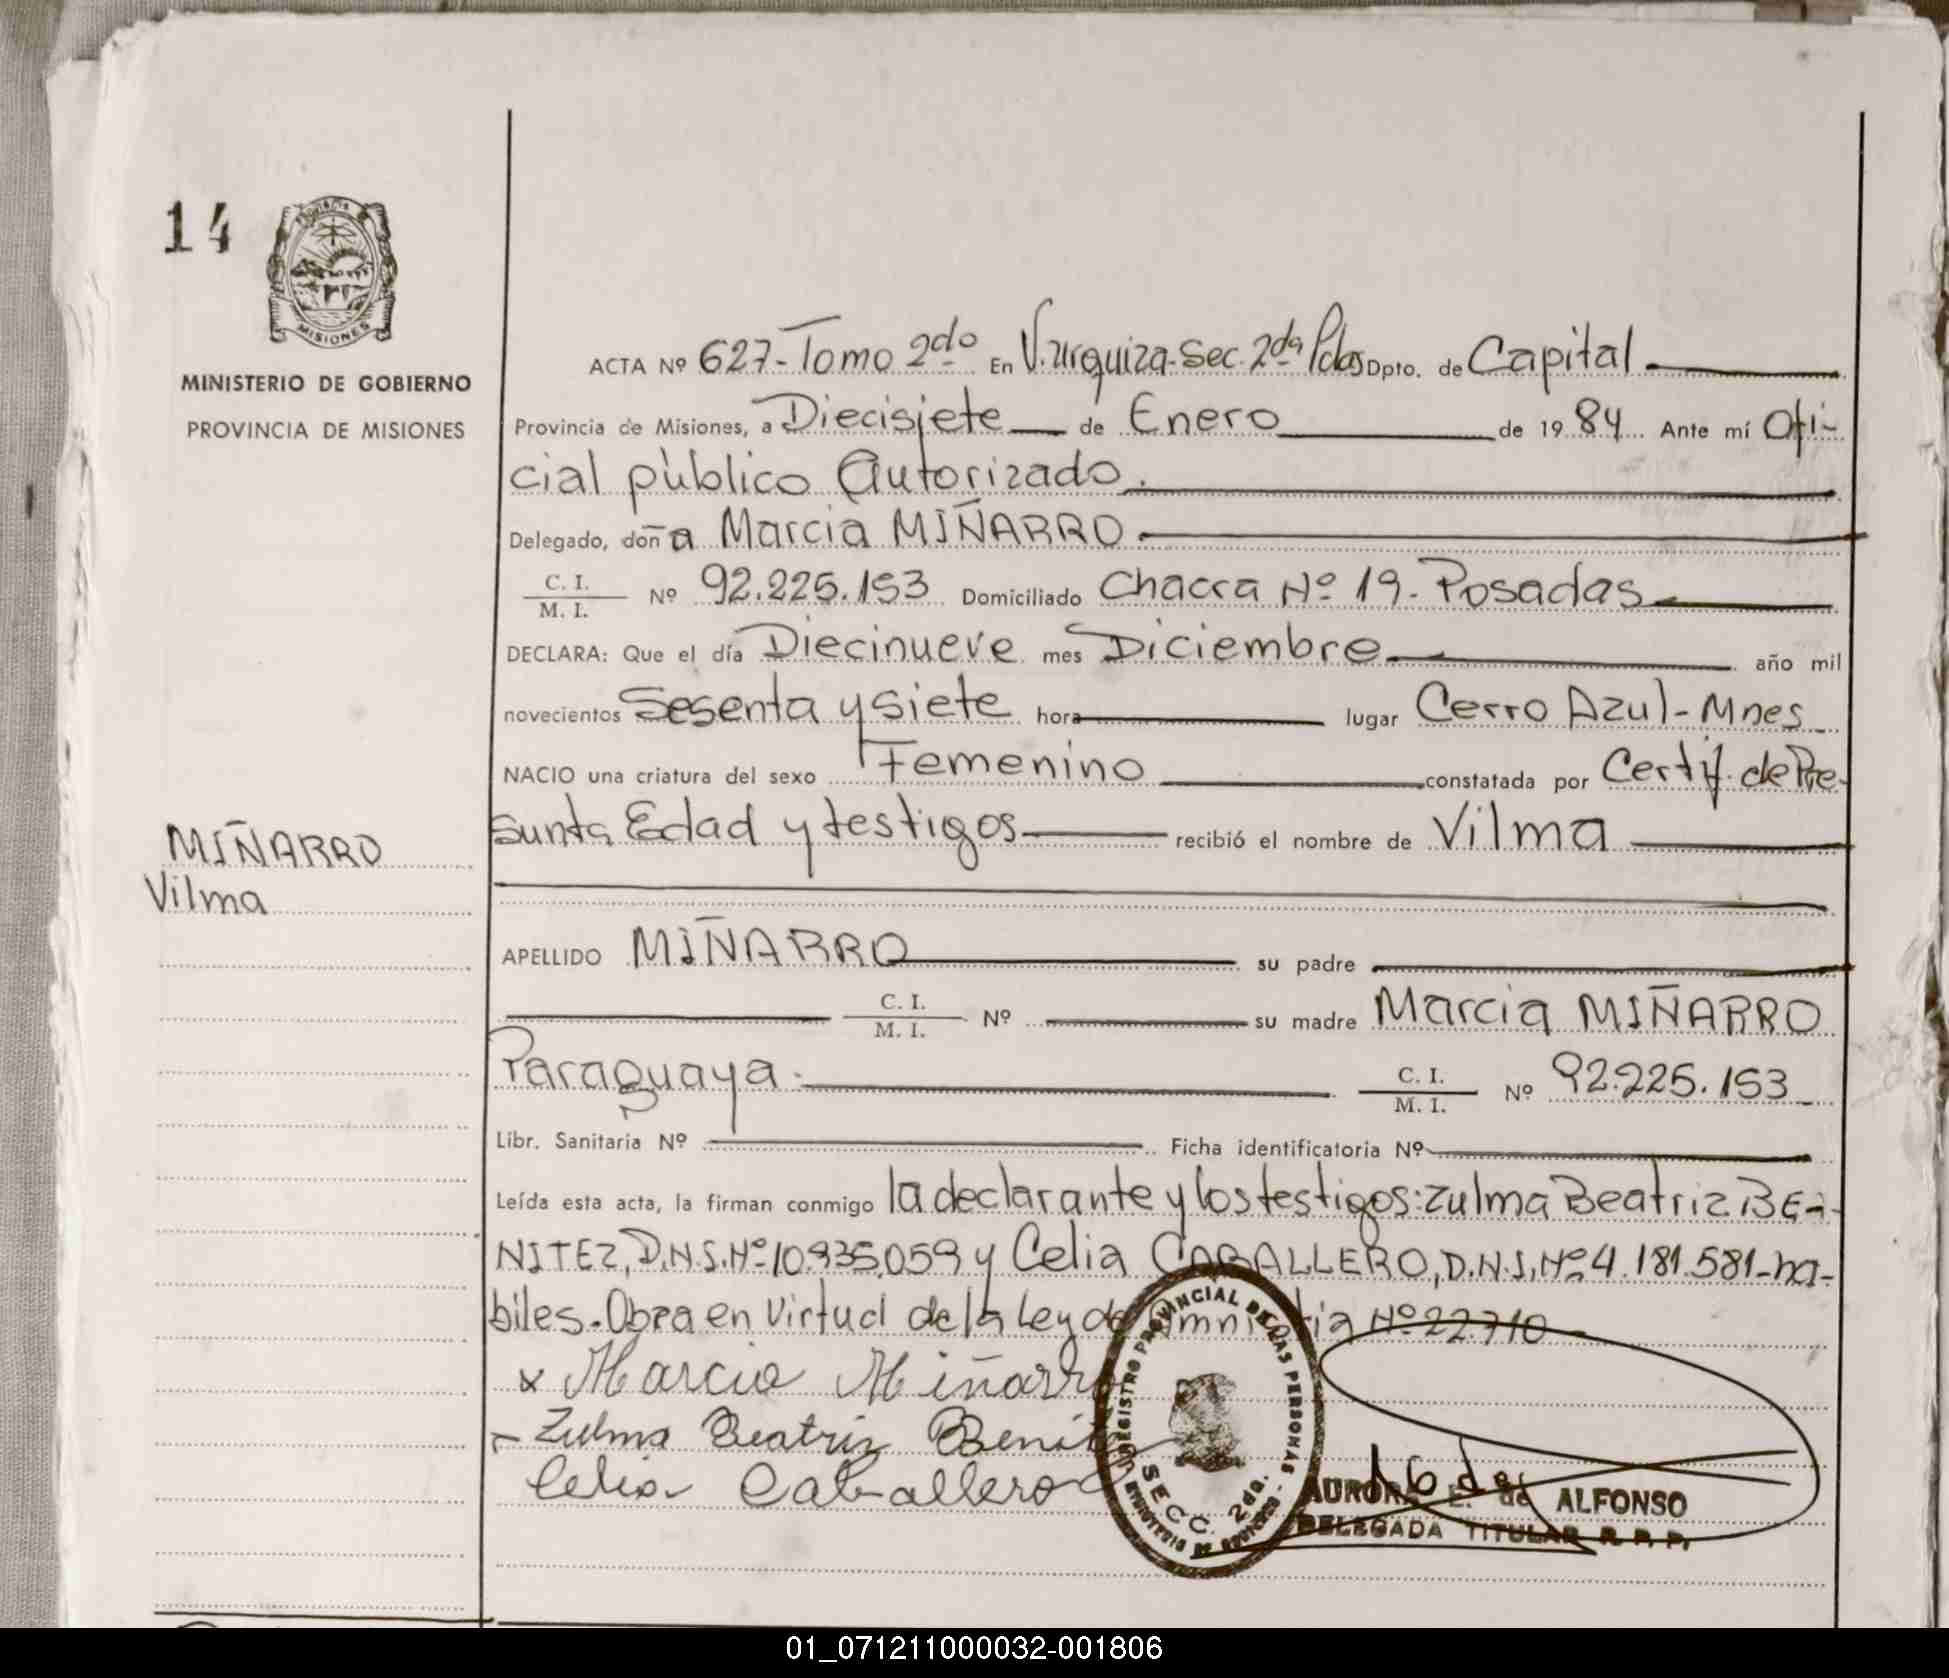 14
MISIONES
MINISTERIO DE GOBIERNO
PROVINCIA DE MISIONES
ACTA Nº 627-Tomo 2do En V. Urquiza-Sec. 2da Pdas Dpto. de Capital
Provincia de Misiones, a Diecisiete de Enero de 1984 Ante mí Ofi-
cial público Autorizado.
Delegado, doña Marcia MIÑARRO.
C. I.
M. I. Nº 92.225.153 Domiciliado Chacra Nº 19-Posadas
DECLARA: Que el día Diecinueve mes Diciembre año mil
novecientos Sesenta y siete hora lugar Cerro Azul-Mnes
NACIO una criatura del sexo Femenino constatada por Certif. de Pre-
sunta Edad y testigos recibió el nombre de Vilma
MIÑARRO
Vilma
APELLIDO MIÑARRO su padre
C. I.
M. I. Nº su madre Marcia MIÑARRO
Paraguaya. C. I.
M. I. Nº 92.225.153
Libr. Sanitaria Nº Ficha identificatoria Nº
Leída esta acta, la firman conmigo la declarante y los testigos: Zulma Beatriz BE-
NITEZ, D.N.I. Nº 10.935.059 y Celia CABALLERO, D.N.I. Nº 4.181.581-ha-
biles. Obra en Virtud de la Ley de Amnistia Nº 22.710
x Marcia Miñarro
Zulma Beatriz Benit
Celia Caballero
REGISTRO PROVINCIAL DE LAS PERSONAS
SECC. 2da.
AURORA E. de ALFONSO
DELEGADA TITULAR R. P. P.
01_071211000032-001806